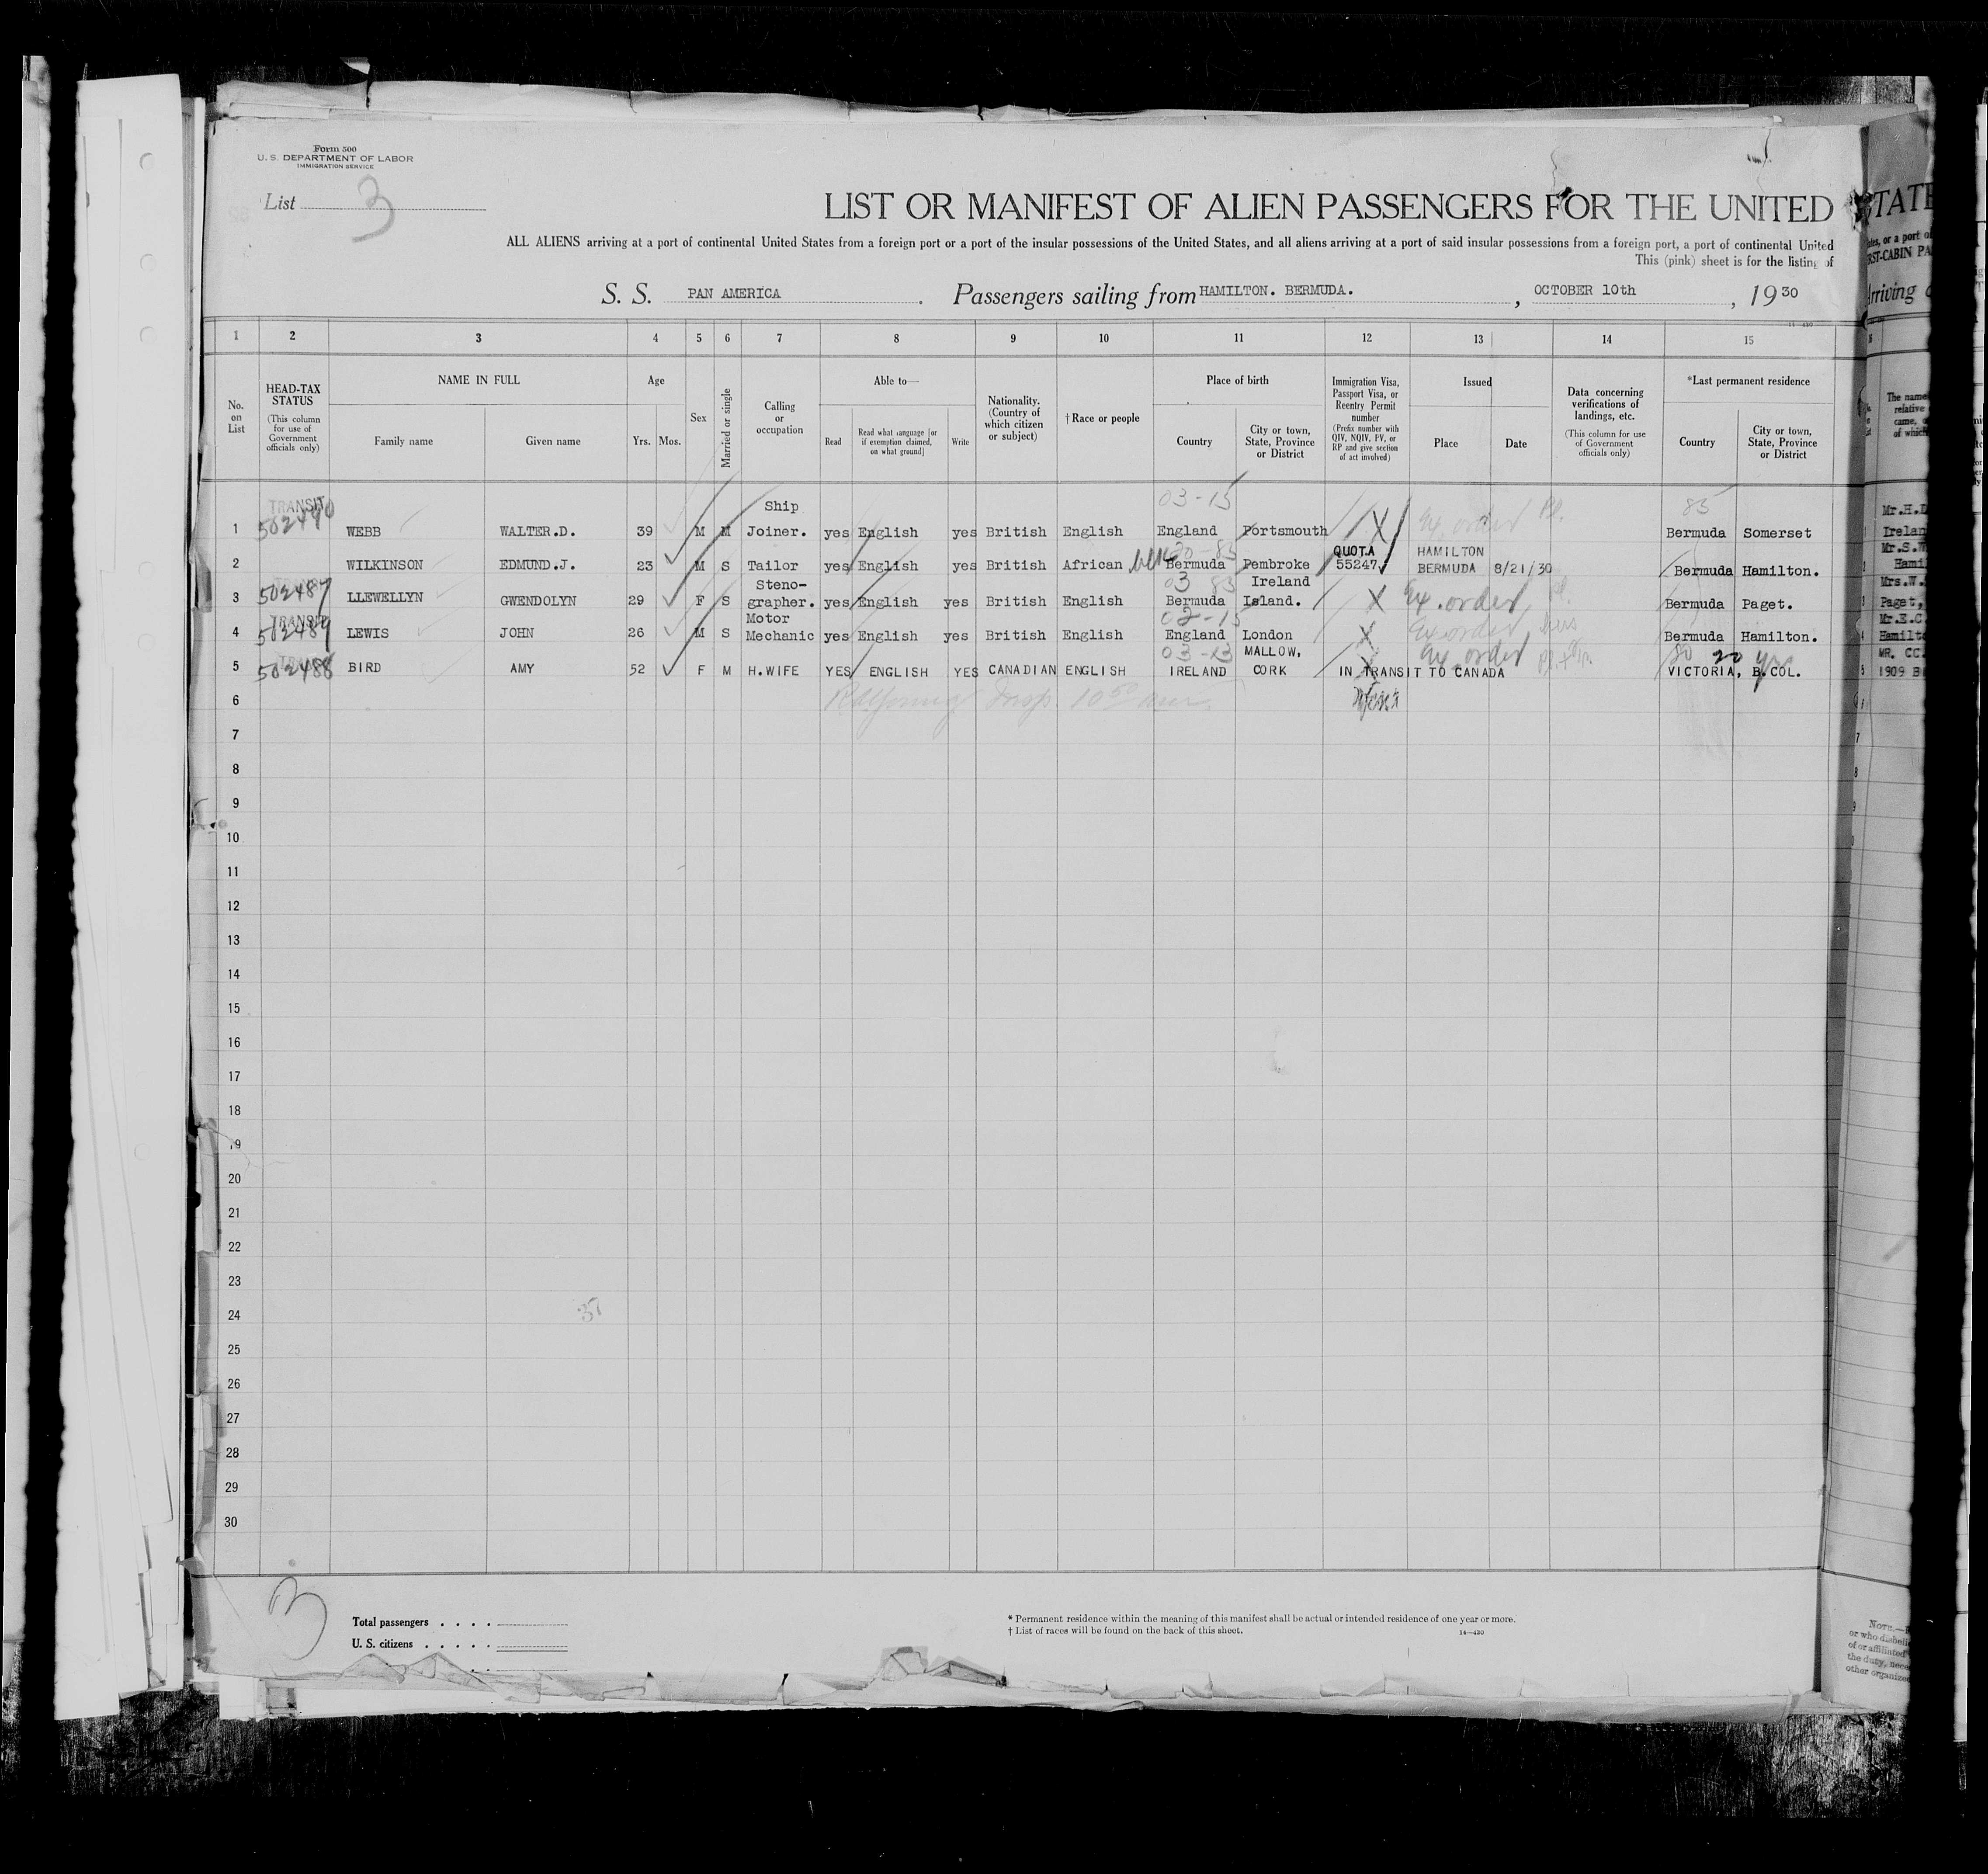 Form 500
U. S. DEPARTMENT OF LABOR
IMMIGRATION SERVICE
List 3
LIST OR MANIFEST OF ALIEN PASSENGERS FOR THE UNITED
ALL ALIENS arriving at a port of continental United States from a foreign port or a port of the insular possessions of the United States, and all aliens arriving at a port of said insular possessions from a foreign port, a port of continental United
This (pink) sheet is for the listing of
S. S. PAN AMERICA. Passengers sailing from HAMILTON. BERMUDA. , OCTOBER 10th , 1930
1 2 3 4 5 6 7 8 9 10 11 12 13 14 15
No. on List
HEAD-TAX STATUS
(This column for use of Government officials only)
NAME IN FULL
Family name Given name
Age
Yrs. Mos.
Sex
Married or single
Calling or occupation
Able to—
Read
Read what language [or if exemption claimed, on what ground]
Write
Nationality. (Country of which citizen or subject)
† Race or people
Place of birth
Country
City or town, State, Province or District
Immigration Visa, Passport Visa, or Reentry Permit number
(Prefix number with QIV, NQIV, PV, or RP and give section of act involved)
Issued
Place Date
Data concerning verifications of landings, etc.
(This column for use of Government officials only)
*Last permanent residence
Country
City or town, State, Province or District
TRANSIT Ship 03-15 85
1 502490 WEBB WALTER.D. 39 M M Joiner. yes English yes British English England Portsmouth X Ex. order Bermuda Somerset
QUOTA HAMILTON
2 WILKINSON EDMUND.J. 23 M S Tailor yes English yes British African blk Bermuda Pembroke 55247 BERMUDA 8/21/30 Bermuda Hamilton.
Steno- 03 83 Ireland
3 502487 LLEWELLYN GWENDOLYN 29 F S grapher. yes English yes British English Bermuda Island. X Ex. order Bermuda Paget.
TRANSIT Motor 02-15
4 502489 LEWIS JOHN 26 M S Mechanic yes English yes British English England London X Ex order Bermuda Hamilton.
03-13 MALLOW, Ex. order 80 20 yrs
5 502488 BIRD AMY 52 F M H.WIFE YES ENGLISH YES CANADIAN ENGLISH IRELAND CORK IN TRANSIT TO CANADA VICTORIA, B.COL.
6
7
8
9
10
11
12
13
14
15
16
17
18
19
20
21
22
23
24
25
26
27
28
29
30
3
Total passengers . . . .
U. S. citizens . . . . .
* Permanent residence within the meaning of this manifest shall be actual or intended residence of one year or more.
† List of races will be found on the back of this sheet.
14—430